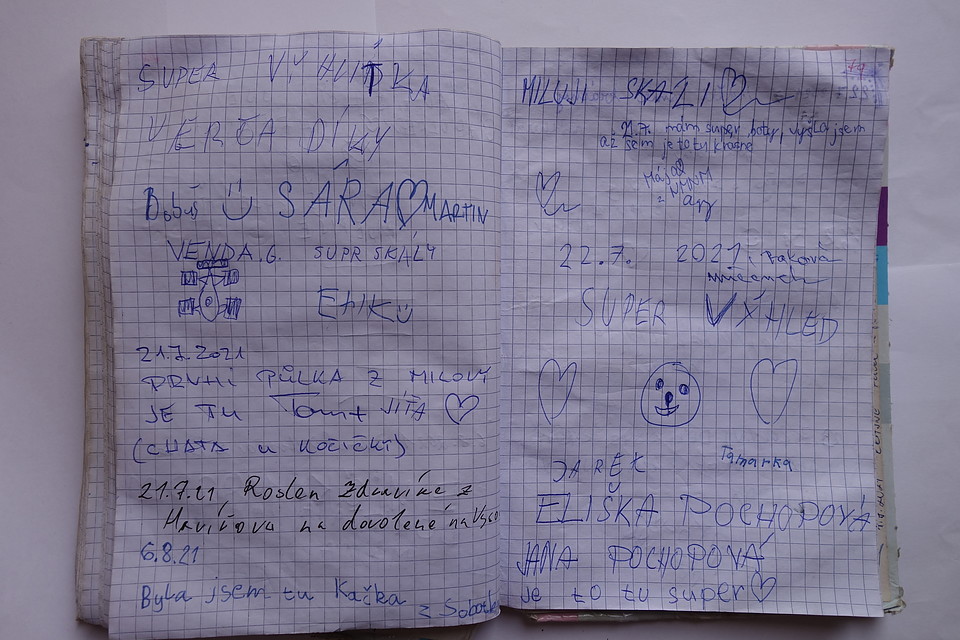 SUPER VÝHLÍTKA
VERČA DÍKY
SÁRA MARTIN
VENDA.G. SUPR SKÁLY
21.7.2021
PRVNÍ PŮLKA Z MILOVY
JE TU Tom + JÍŤA
(CHATA U KOČIČKY)
21.7.21 Zdravíme z
Havířova na dovolené na
6.8.21
Byla jsem tu Kačka z
MILUJI SKÁLI
21.7. mám super boty, vyšla jsem
až sem je to tu krásné
Mája
z NMNM
22.7. 2021
SUPER VÝHLED
JAREK Tamarka
ELIŠKA POCHOPOVÁ
JANA POCHOPOVÁ
je to tu super